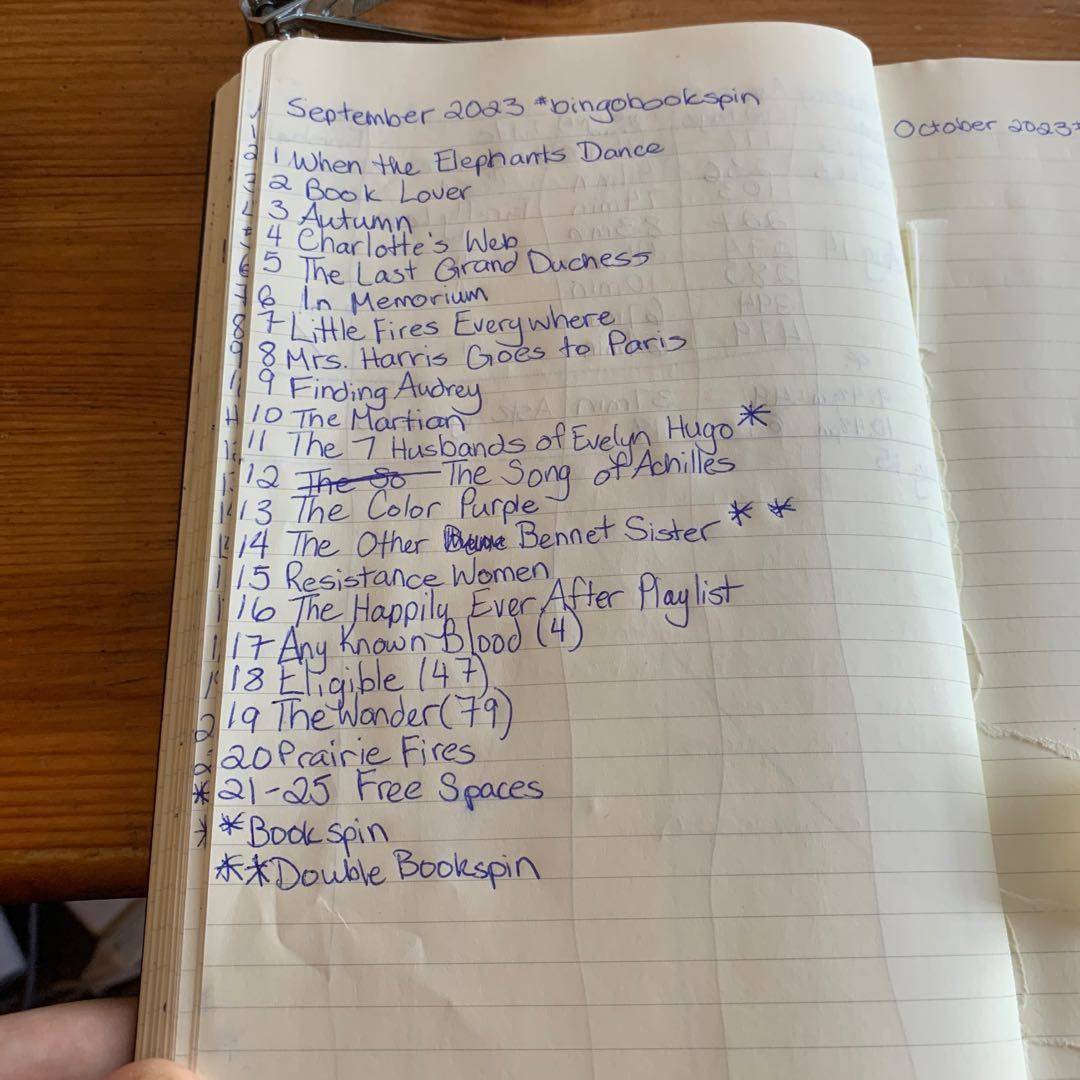 September 2023 *bingobookspin
1 When the Elephants Dance
2 Book Lover
3 Autumn
4 Charlotte's Web
5 The Last Grand Duchess
6 In Memorium
7 Little Fires Everywhere
8 Mrs. Harris Goes to Paris
9 Finding Audrey
10 The Martian
11 The 7 Husbands of Evelyn Hugo *
12 The So The Song of Achilles
13 The Color Purple
14 The Other Bennet Sister * *
15 Resistance Women
16 The Happily Ever After Playlist
17 Any Known Blood (4)
18 Eligible (47)
19 The Wonder (79)
20 Prairie Fires
*21-25 Free Spaces
*Bookspin
**Double Bookspin
October 2023*